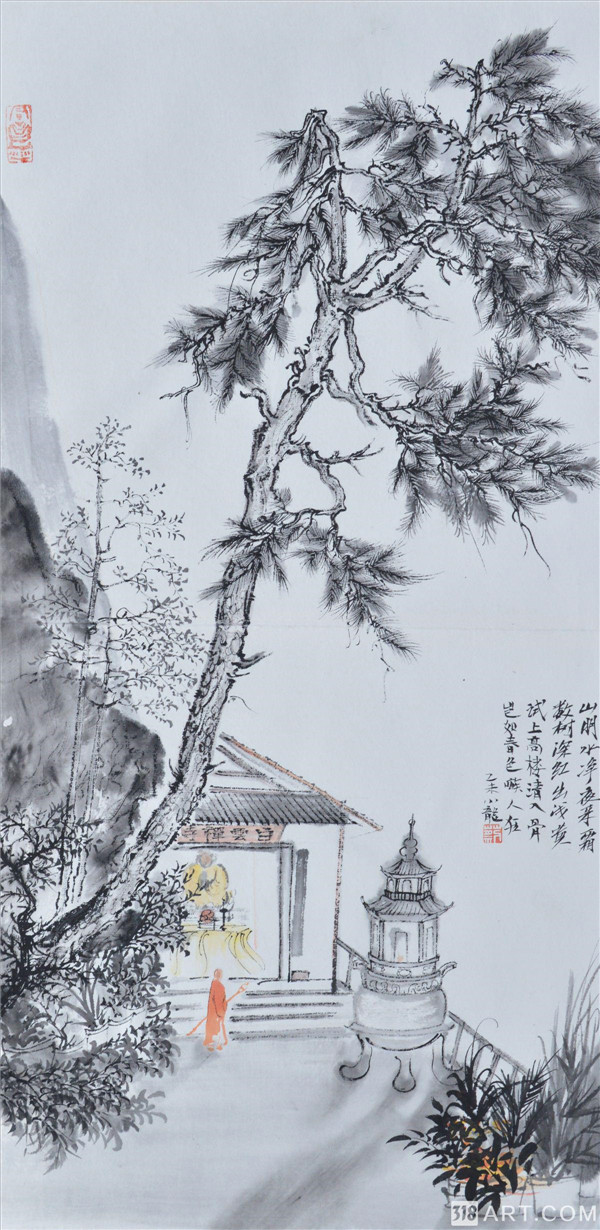 白雲禪寺
山明水净夜来霜
数树深红出浅黄
试上高楼清入骨
岂如春色嗾人狂
乙未 龍
318 ART.COM